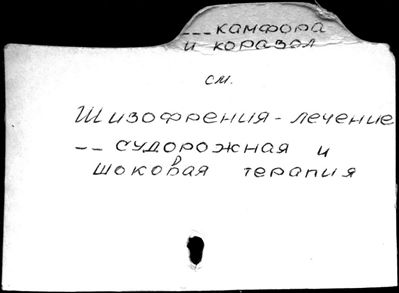 --- камфора
и коразол
см.
Шизофрения - лечение
-- судорожная и
шоковая терапия